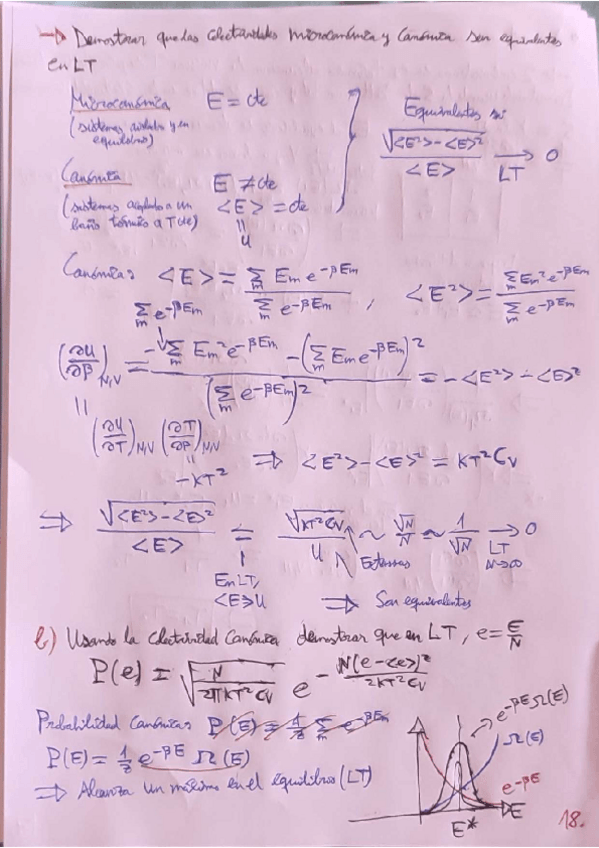 → Demostrar que las colectividades microcanónica y canónica son equivalentes
en LT
Microcanónica E = cte
(sistemas aislados y en
equilibrio)
Equivalentes si
√(<E²> - <E>²) / <E> → 0
LT
Canónica E ≠ cte
(sistemas acoplados a un <E> = cte
baño térmico a T cte) ||
u
Canónica: <E> = Σm Em e^-βEm / Σm e^-βEm , <E²> = Σm Em² e^-βEm / Σm e^-βEm
Σm e^-βEm
(∂U/∂β)N,V = -Σm Em² e^-βEm - (Σm Em e^-βEm)² / (Σm e^-βEm)² = -<E²> - <E>²
||
(∂U/∂T)N,V (∂T/∂β)N,V
||
-KT² ⇒ <E²> - <E>² = KT² Cv
⇒ √(<E²> - <E>²) / <E> = √(KT² Cv) / U ~ √N / N ~ 1/√N → 0
LT
N→∞
Extensivas
En LT,
<E> = U ⇒ Son equivalentes
b) Usando la colectividad canónica demostrar que en LT, e = E/N
P(e) = √(N / 2πKT² Cv) e^ -N(e - <e>)² / 2KT² Cv
Probabilidad canónica: P(E) = 1/Z Σm e^-βEm
P(E) = 1/Z e^-βE Ω(E)
⇒ Alcanza un máximo en el equilibrio (LT)
e^-βE Ω(E)
Ω(E)
e^-βE
E
E*
18.